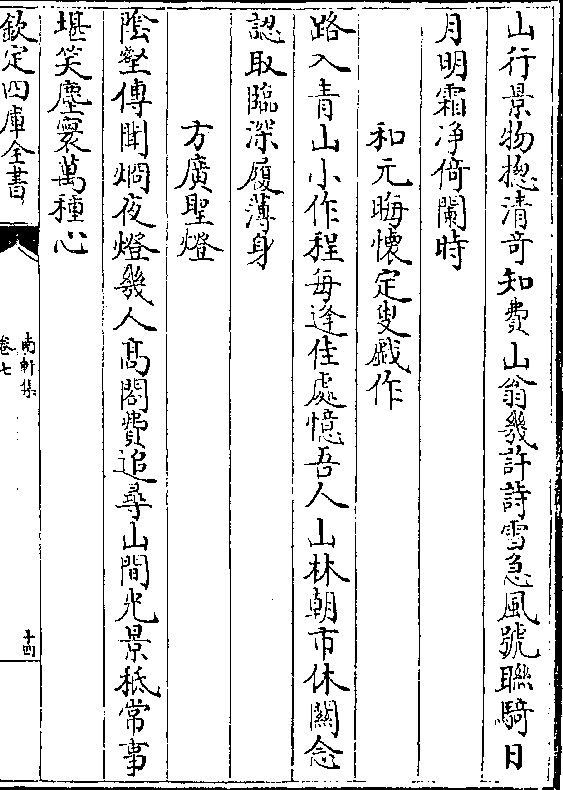 山行景物揔清竒知費山翁幾許詩雪急風號聯騎日
月明霜净倚闌時
和元晦懷定叟戲作
路入青山小作程每逢佳處憶吾人山林朝市休關念
認取臨深履薄身
方廣聖燈
陰壑傳聞炯夜燈幾人高閣費追尋山間光景秪常事
堪笑塵寰萬種心
欽定四庫全書
南軒集
卷七
十四